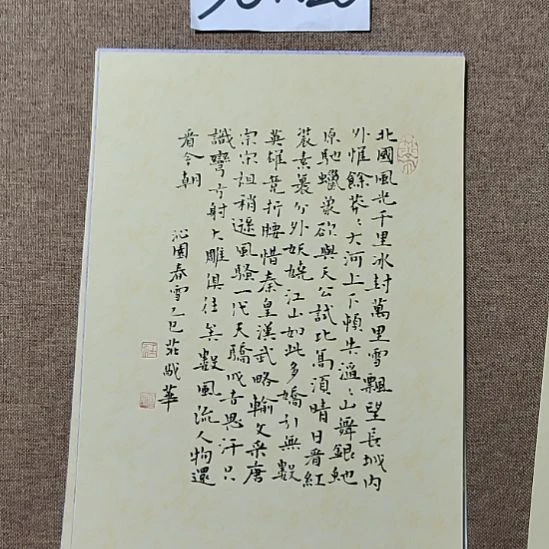 北國風光千里冰封萬里雪飄望長城内
外惟餘莽〻大河上下頓失滔〻山舞銀蛇
原馳蠟象欲與天公試比高須晴日看紅
裝素裹分外妖嬈江山如此多嬌引無數
英雄競折腰惜秦皇漢武略輸文采唐
宗宋祖稍遜風騷一代天驕成吉思汗只
識彎弓射大雕俱往矣數風流人物還
看今朝
沁園春雪乙巳莊華